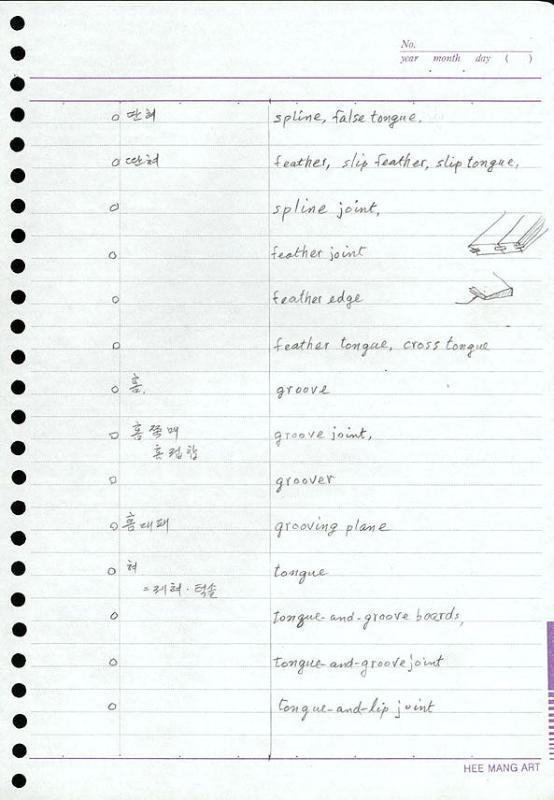 No.
year month day ( )
딴혀 spline, false tongue.
딴혀 feather, slip feather, slip tongue,
spline joint,
feather joint
feather edge
feather tongue, cross tongue
홈. groove
홈쪽매 groove joint,
홈접합
groover
홈대패 grooving plane
혀 tongue
= 제혀 · 턱솔
tongue-and-groove boards,
tongue-and-groove joint
tongue-and-lip joint
HEE MANG ART